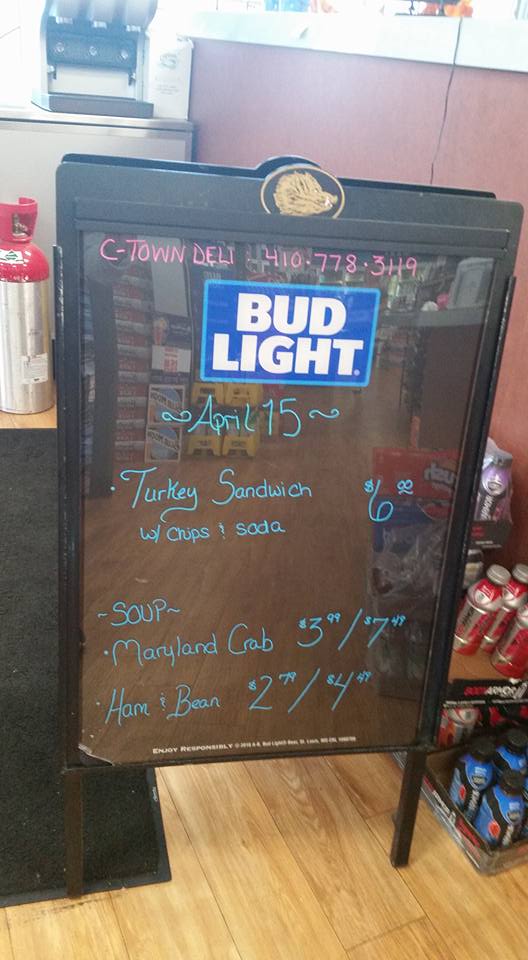 C-TOWN DELI · 410·778·3119
BUD
LIGHT
~April 15~
· Turkey Sandwich $6.00
w/ chips & soda
~SOUP~
· Maryland Crab $3.99/$7.49
· Ham & Bean $2.79/$4.49
ENJOY RESPONSIBLY
BODYARMOR